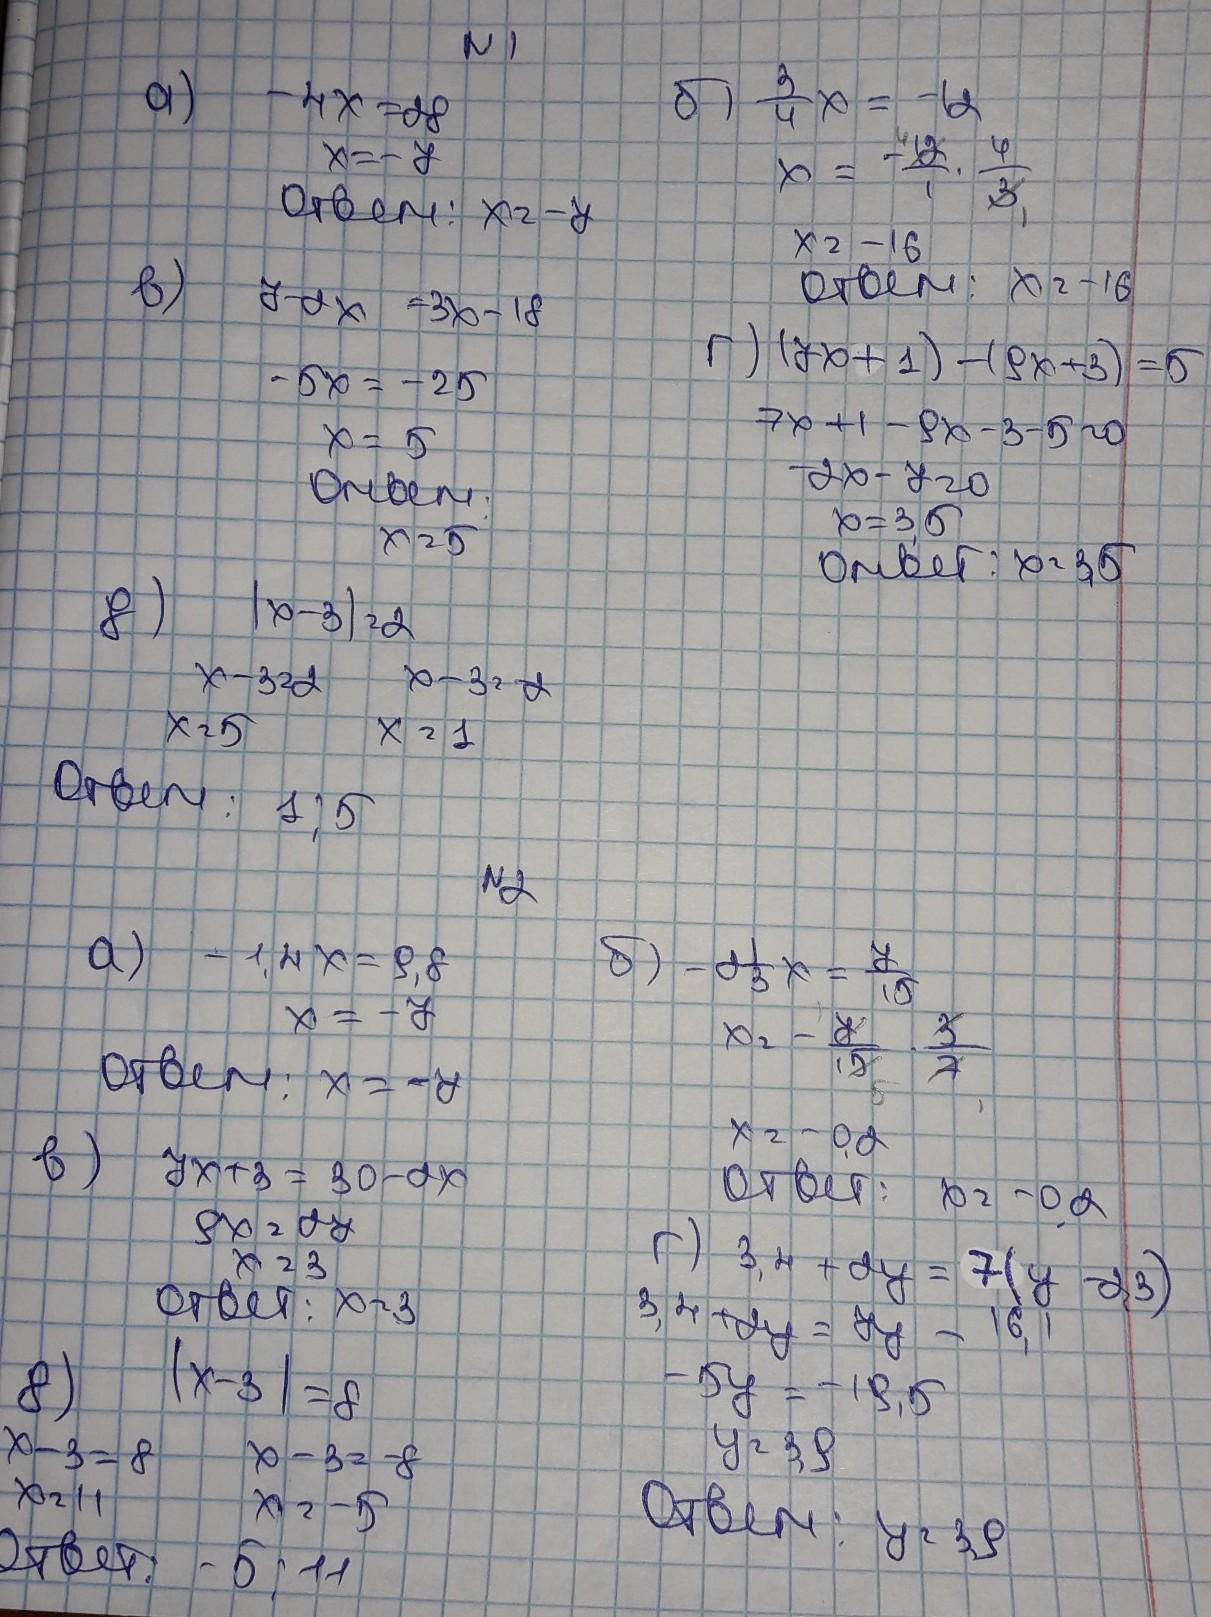 N 1
а) -4x = 28
x = -7
Ответ: x = -7
б) 3/4 x = -12
x = -12/1 · 4/3
x = -16
Ответ: x = -16
в) 7-2x = 3x-18
-5x = -25
x = 5
Ответ:
x = 5
г) (7x+1) - (9x+3) = 5
7x+1-9x-3-5=0
-2x-7=0
x=3,5
Ответ: x=3,5
д) |x-3|=2
x-3=2 x-3=-2
x=5 x=1
Ответ: 1;5
N2
а) -1,4x = 9,8
x = -7
Ответ: x = -7
б) -2 1/3 x = 7/15
x = - 7/15 · 3/7
x = -0,2
Ответ: x = -0,2
в) 7x+3 = 30-2x
9x = 27
x = 3
Ответ: x=3
г) 3,4 + 2y = 7(y - 2,3)
3,4+2y = 7y - 16,1
-5y = -19,5
y = 3,9
Ответ: y = 3,9
д) |x-3| = 8
x-3=8 x-3=-8
x=11 x=-5
Ответ: -5; 11